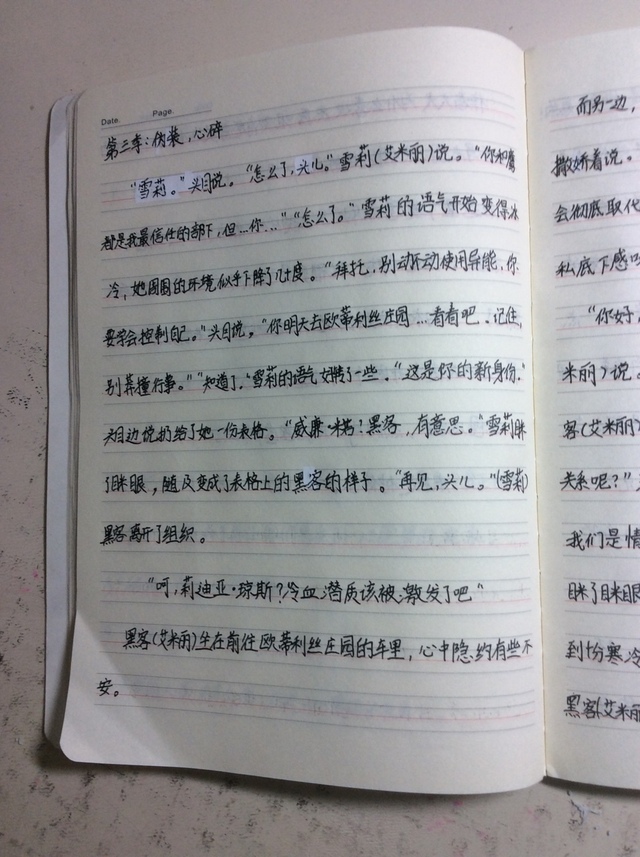 Date.
Page.
第三季：伪装，心碎
“雪莉。”头目说。“怎么了，头儿。”雪莉（艾米丽）说。“你和鹰
都是我最信任的部下，但…你…”“怎么了。”雪莉的语气开始变得冰
冷，她周围的环境似乎下降了几十度。“拜托，别动不动使用异能，你
要学会控制自己。”头目说。“你明天去欧蒂利丝庄园…看看吧、记住，
别莽撞行事。”“知道了，”雪莉的语气好转了一些，“这是你的新身份。”
头目边说扔给了她一份表格。“威廉·诺？黑客，有意思。”雪莉眯
了眯眼，随及变成了表格上的黑客的样子。“再见，头儿。”（雪莉）
黑客离开了组织。
“呵，莉迪亚·琼斯？冷血潜质该被激发了吧”
黑客（艾米丽）坐在前往欧蒂利丝庄园的车里，心中隐约有些不
安。
而另一边，
撒娇着说。
会彻底取代
私底下感
“你好，
米丽）说。
客（艾米丽
关系呢？”
我们是情
眯了眯眼
到份寒冷
黑客（艾米丽